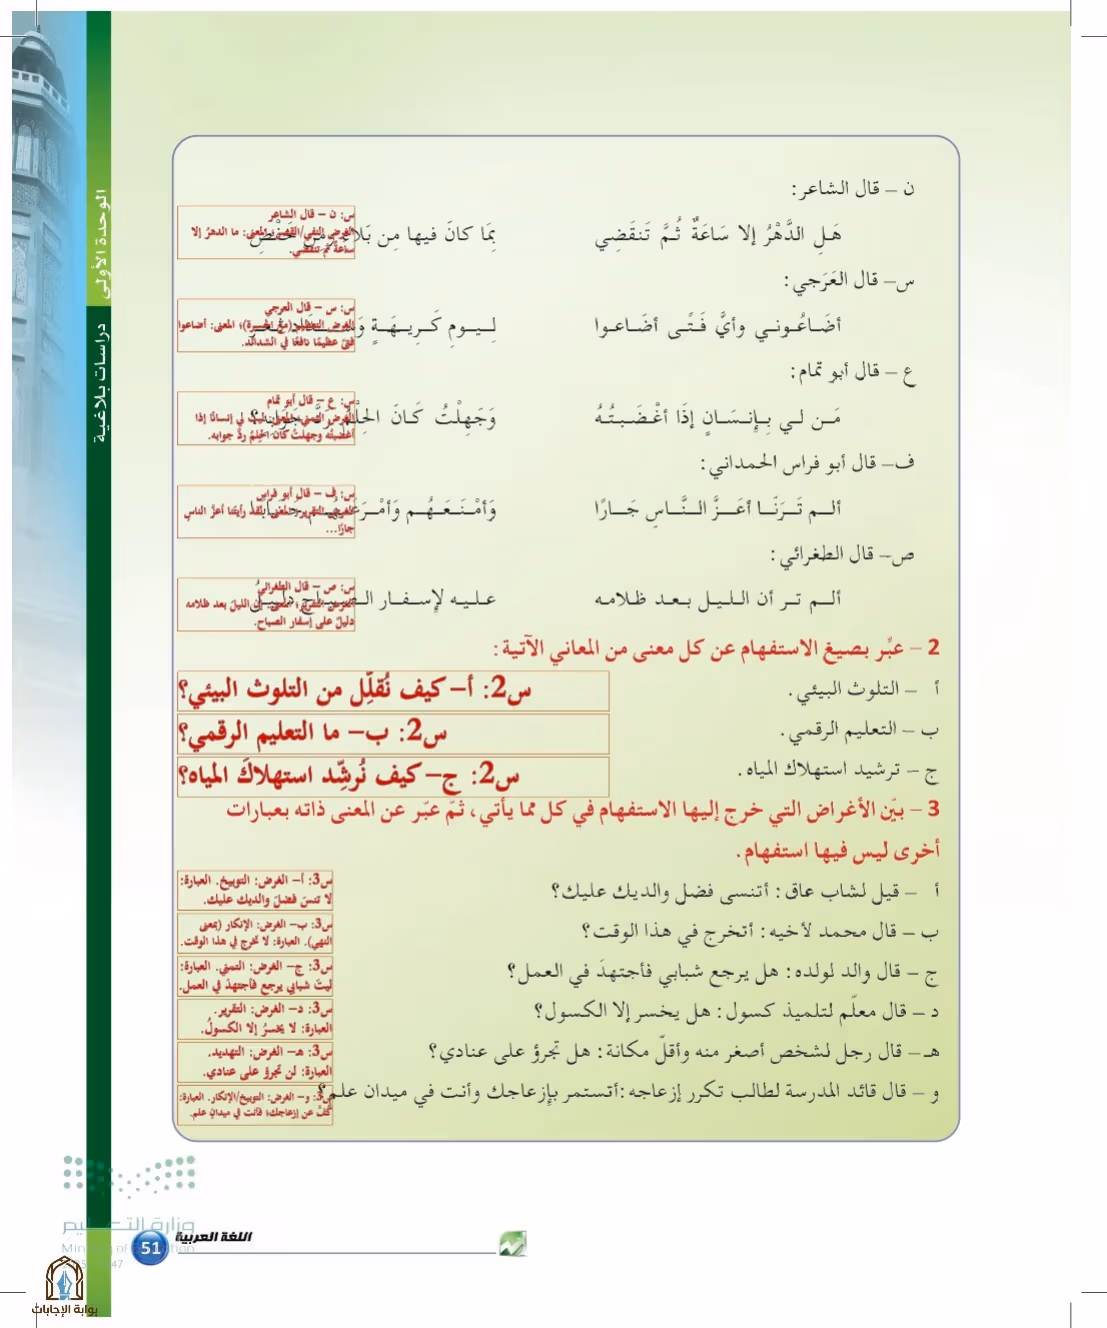 ن – قال الشاعر:
س: ن – قال الشاعر
هَلِ الدَّهْرُ إلا سَاعَةٌ ثُمَّ تَنقَضِي بِمَا كانَ فيها مِن
الغرض النفي/القصر؛ المعنى: ما الدهرُ إلا
ساعةٌ ثم تنقضي.
س– قال العَرَجي:
س: س – قال العرجي
أضَاعُوني وأيَّ فَتًى أضَاعوا لِيومِ كَرِيهَةٍ
الغرض التعظيم (مع الحسرة)؛ المعنى: أضاعوا
فتىً عظيمًا نافعًا في الشدائد.
ع – قال أبو تمام:
س: ع – قال أبو تمام
مَن لي بِإِنسَانٍ إذَا أغْضَبتُهُ وَجَهِلْتُ كَانَ الحِلْمُ رَدَّ جَوَابِهِ؟
الغرض التمني؛ المعنى: ليت لي إنسانًا إذا
أغضبتُه وجهلتُ كان الحِلمُ ردَّ جوابه.
ف– قال أبو فراس الحمداني:
س: ف – قال أبو فراس
ألم تَرَنَا أعَزَّ النَّاسِ جَارًا وَأمْنَعَهُم
الغرض التقرير؛ المعنى: لقد رأيتنا أعزَّ الناسِ
جارًا...
ص– قال الطغرائي:
س: ص – قال الطغرائي
ألم تر أن الليل بعد ظلامه عليه لإسفار الصباح دليلُ
الغرض التقرير؛ المعنى: إن الليلَ بعد ظلامه
دليلٌ على إسفار الصباح.
2 – عبِّر بصيغ الاستفهام عن كل معنى من المعاني الآتية:
أ – التلوث البيئي.
س2: أ– كيف نُقلِّل من التلوث البيئي؟
ب – التعليم الرقمي.
س2: ب– ما التعليم الرقمي؟
ج – ترشيد استهلاك المياه.
س2: ج– كيف نُرشِّد استهلاكَ المياه؟
3 – بيّن الأغراض التي خرج إليها الاستفهام في كل مما يأتي، ثمّ عبّر عن المعنى ذاته بعبارات
أخرى ليس فيها استفهام.
أ – قيل لشاب عاق: أتنسى فضل والديك عليك؟
س3: أ– الغرض: التوبيخ. العبارة:
لا تنسَ فضلَ والديك عليك.
ب – قال محمد لأخيه: أتخرج في هذا الوقت؟
س3: ب– الغرض: الإنكار (بمعنى
النهي). العبارة: لا تخرج في هذا الوقت.
ج – قال والد لولده: هل يرجع شبابي فأجتهدَ في العمل؟
س3: ج– الغرض: التمني. العبارة:
ليتَ شبابي يرجع فأجتهدَ في العمل.
د – قال معلّم لتلميذ كسول: هل يخسر إلا الكسول؟
س3: د– الغرض: التقرير.
العبارة: لا يخسرُ إلا الكسولُ.
هـ – قال رجل لشخص أصغر منه وأقلّ مكانة: هل تجرؤ على عنادي؟
س3: هـ– الغرض: التهديد.
العبارة: لن تجرؤ على عنادي.
و – قال قائد المدرسة لطالب تكرر إزعاجه: أتستمر بإزعاجك وأنت في ميدان علم؟
س3: و– الغرض: التوبيخ/الإنكار. العبارة:
كُفَّ عن إزعاجك؛ فأنت في ميدانِ علم.
الوحدة الأولى
دراسات بلاغية
وزارة التعليم
Ministry of Education
اللغة العربية
51
بوابة الإجابات